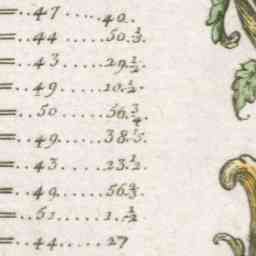 =..47....40.
=..44.....50.⅓.
=..43.....29.½.
=..49.....10.½.
=...50.....56.¾
=...49.....38.⅕.
=..43.....23.½.
=..49.....56.⅔.
=..51.....1.½
=..44.....27